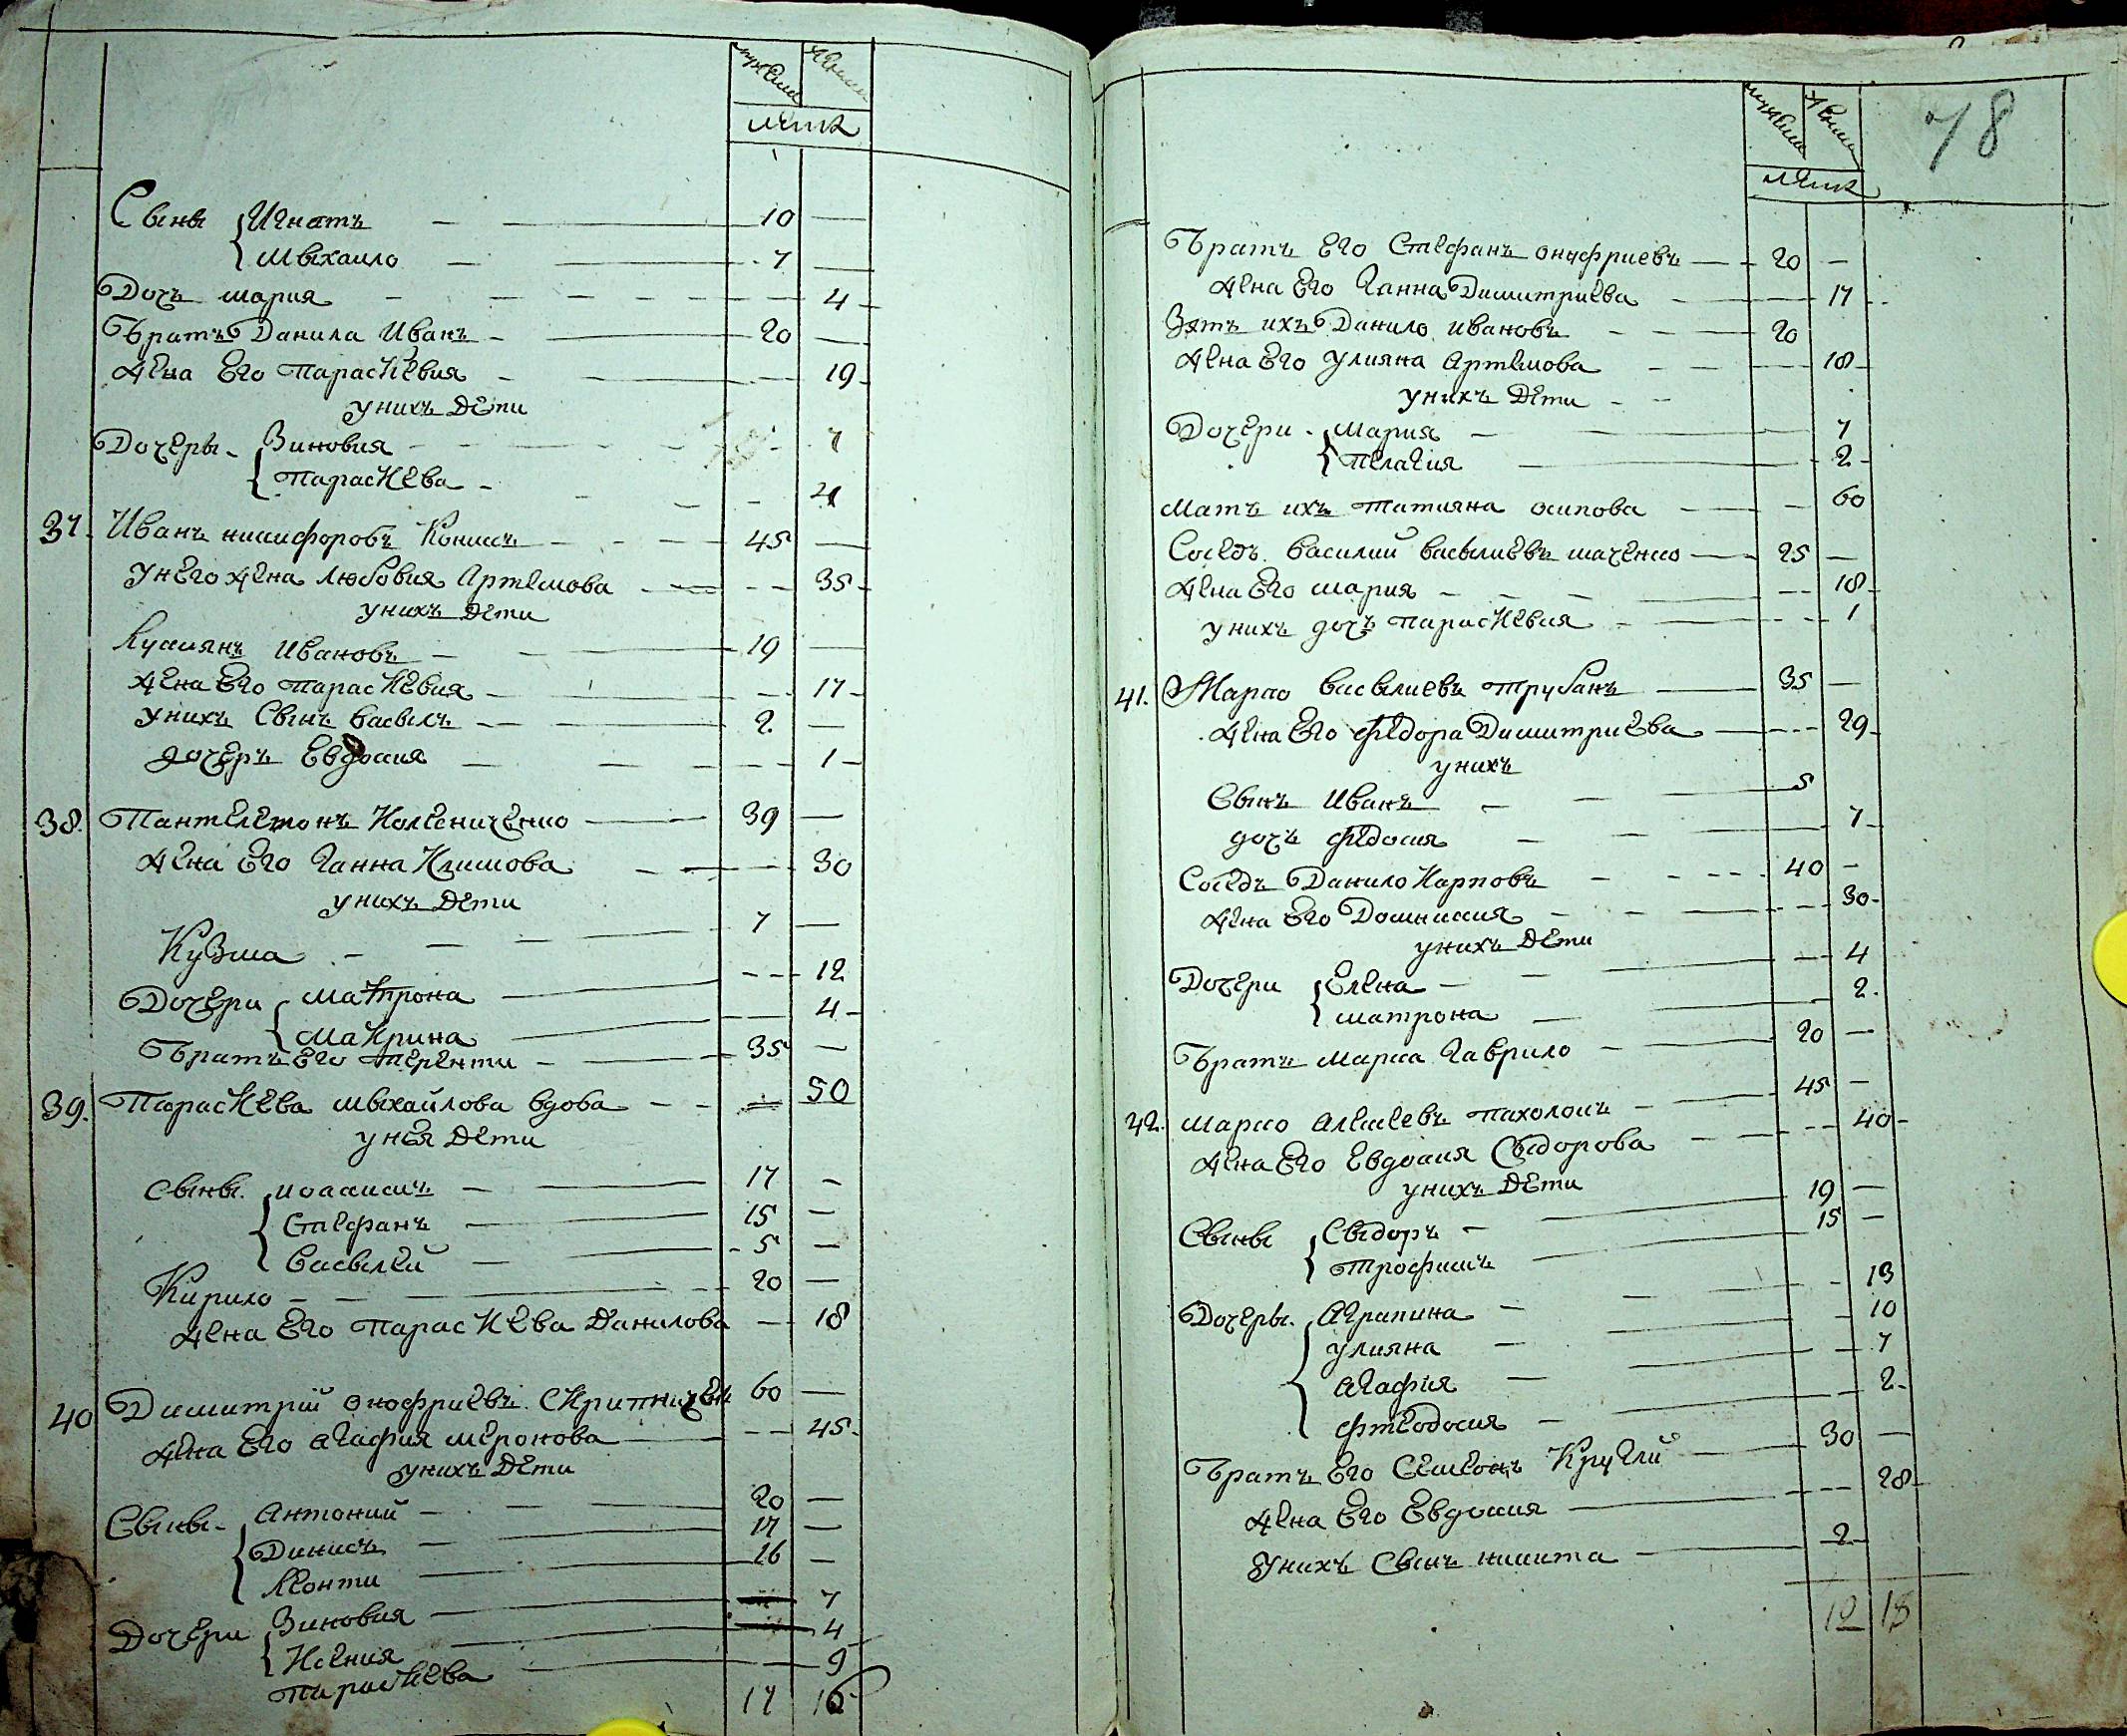 мужеска женска
лѣта
Сыны Игнатъ 10 —
Мыхаило 7 —
Дочь мария 4
Братъ Данила Иванъ 20 —
жена Его параскевия 19
уних дети
Дочеры Зиновия 7
параскева
37. Иванъ никифоровъ Кониш 45 —
унего жена любовия Артемова 35
унихъ дети
Лукиянъ Ивановъ 19 —
жена Его параскевия 17
унихъ Сынъ васылъ 2 —
дочеръ Евдокия 1
38. Пантелемонъ Колесниченко 39 —
жена Его Ганна Климова 30
унихъ дети
Кузма 7 —
Дочери матрона 12
Макрина 4
Братъ Его теренти 35 —
39. Параскева мыхайлова вдова 50
унея дети
Сыны иоакимъ 17 —
Стефанъ 15 —
Васылей 5 —
Кирило 20 —
жена Его параскева данилова 18
40 Димитрий онофриевъ Скрипничен 60 —
жена Его агафия меронова 45
унихъ дети
Сыны Антоний 20 —
Динисъ 17 —
Леонти 16 —
Дочери Зиновия 7
Ксения 4
параскева 9
17 16
мужеска женска
78
лѣта
Братъ Его Стефанъ онуфриевъ 20 —
жена Его Ганна Димитриева 17
Зять ихъ Данило ивановъ 20
жена Его улияна Артемова 18
унихъ дети
Дочери Мария 7
пелагия 2
Мать ихъ татияна осипова 60
Соседъ василий васылиевъ маченко 25 —
жена Его мария 18
унихъ дочъ параскевия 1
41. Марко васылиевъ трубанъ 35 —
жена Его федора Димитриева 29
унихъ
Сынъ Иванъ 5
дочъ федосия 7
Соседъ Данило Карповъ 40 —
жена Его Домникия 30
унихъ дети
Дочери Елена 4
матрона 2
Братъ марка Гаврило 20 —
42. марко алексевъ пахоломъ 45 —
жена Его Евдокия Сыдорова 40
унихъ дети
Сыны Сыдоръ 19 —
трофимъ 15 —
Дочеры Агрипина 13
улияна 10
агафия 7
фтеодосия 2
Братъ Его Семеонъ Кругли 30 —
жена Его Евдокия 28
Унихъ Сынъ никита 2
12 18